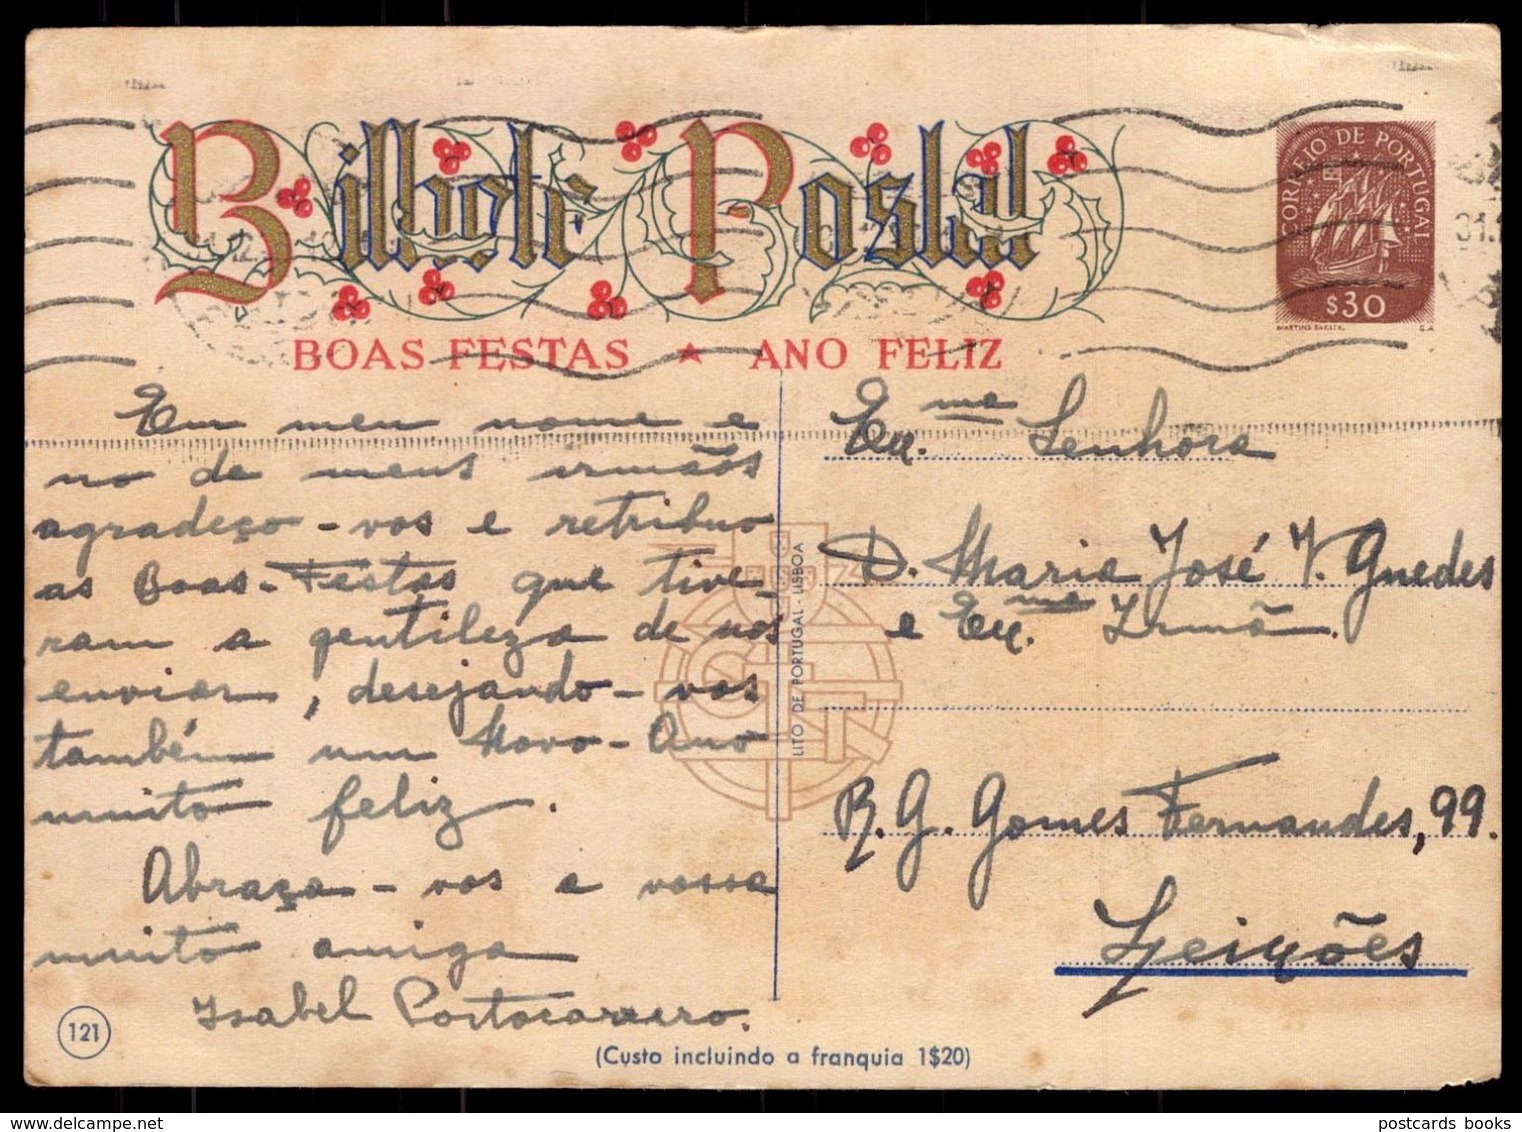 Bilhete Postal
BOAS FESTAS ★ ANO FELIZ
CORREIO DE PORTUGAL
$30
MARTINS BARATA
G.A.
31.
Em meu nome e
no de meus irmãos
agradeço-vos e retribuo
as Boas-Festas que tive-
ram a gentileza de nos
enviar, desejando-vos
também um Novo-Ano
muito feliz.
Abraça-vos a vossa
muito amiga
Isabel Portocarrero.
121
LITO DE PORTUGAL - LISBOA
Ex.ma Senhora
D. Maria José V. Guedes
e Ex.ma Irmã.
R. G. Gomes Fernandes, 99.
Leixões
(Custo incluindo a franquia 1$20)
postcards books